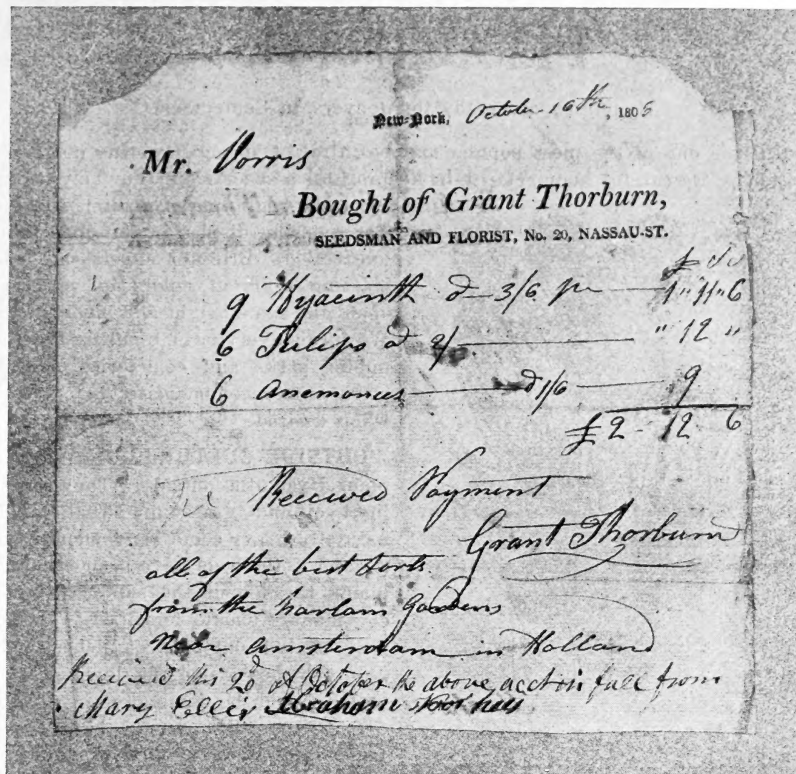 New-York, October 16th, 180
Mr. Vorris
Bought of Grant Thorburn,
SEEDSMAN AND FLORIST, No. 20, NASSAU-ST.
£
9 Hyacinth @ 3/6 pr 1 " 11 " 6
6 Tulips @ 2/ " 12 "
6 anemones @ 1/6 9
£ 2 - 12 6
Received Payment
Grant Thorburn
all of the best sorts
from the harlam Gardens
near amsterdam in Holland
Received this 2d of October the above acct in full from
Mary Ellis Abraham